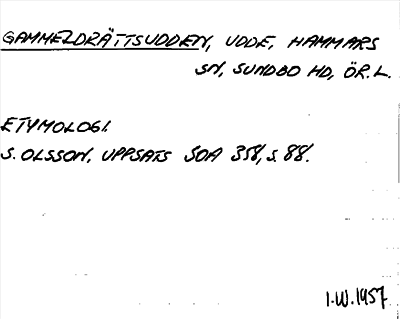 GAMMELDRÄTTSUDDEN, UDDE, HAMMARS
SN, SUNDBO HD, ÖR.L.
ETYMOLOGI.
S. OLSSON, UPPSATS SOA 358, S. 88.
I.W. 1957